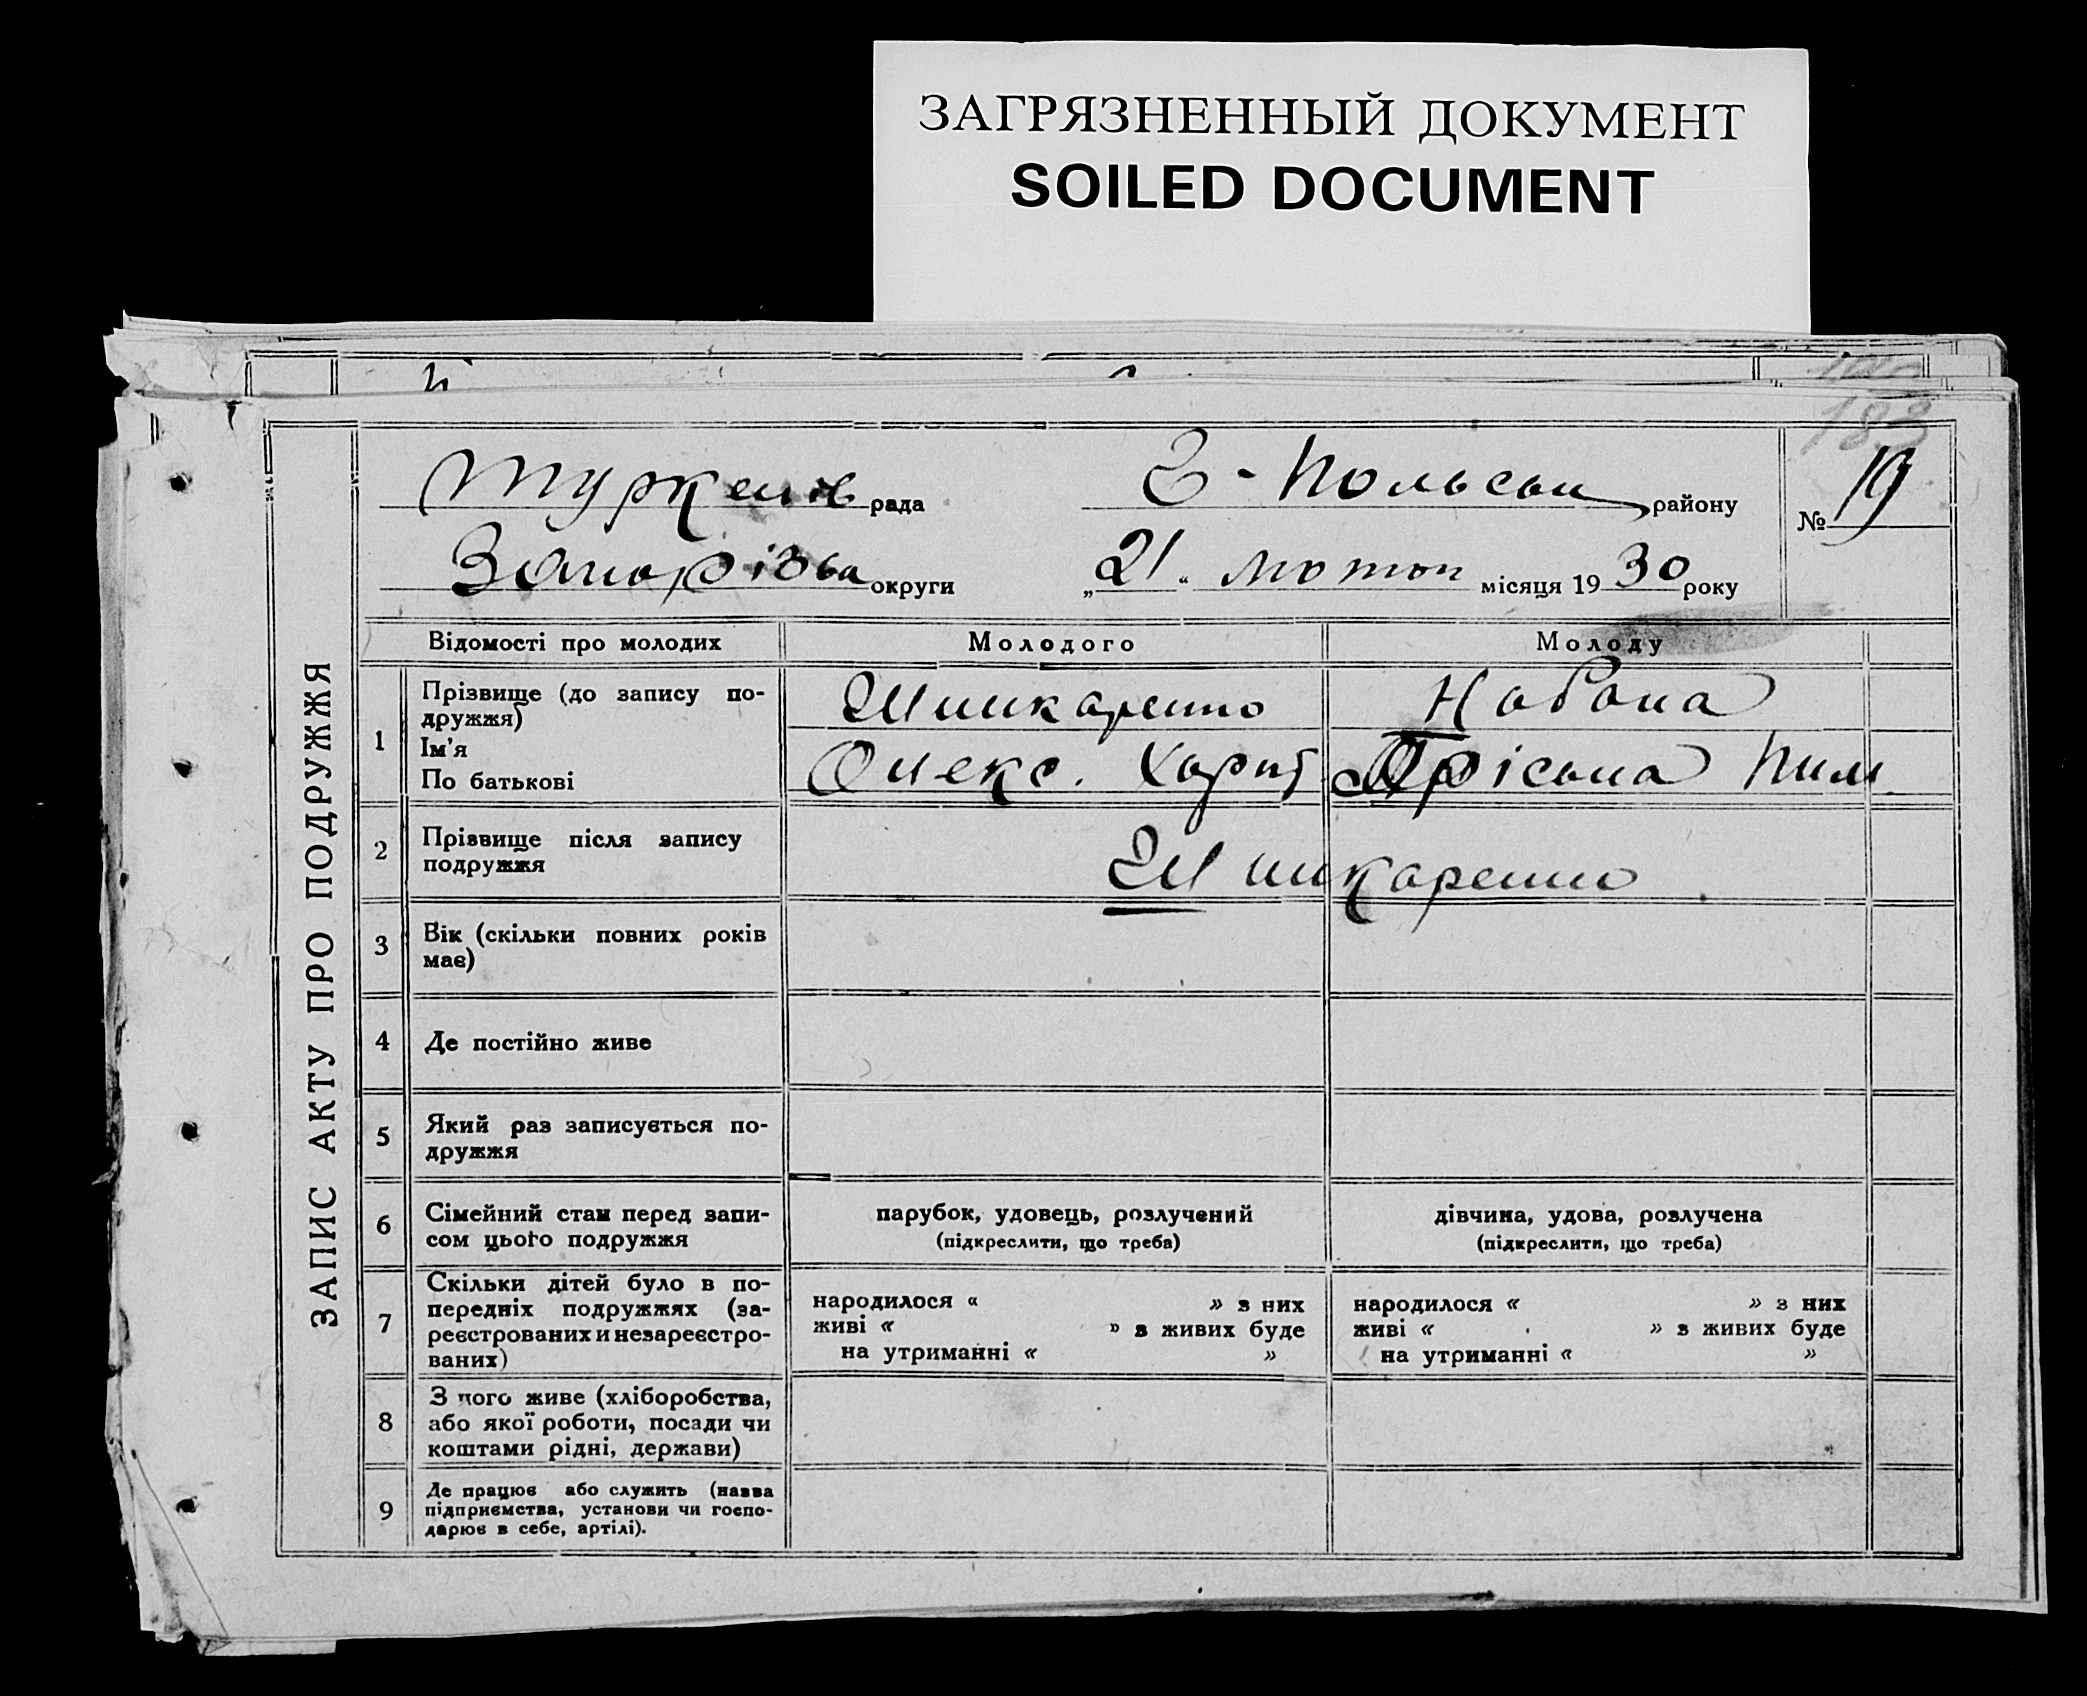 ЗАГРЯЗНЕННЫЙ ДОКУМЕНТ
SOILED DOCUMENT
183
рада
Г-Польськ району
№ 19
Запорізька округи
„21“ лютого місяця 1930 року
ЗАПИС АКТУ ПРО ПОДРУЖЖЯ
Відомості про молодих Молодого Молоду
1 Прізвище (до запису по-
дружжя)
Ім'я
По батькові
Шинкаренко
Олекс. Харит
Набока
Оріська Пим
2 Прізвище після запису
подружжя
Шинкаренко
3 Вік (скільки повних років
має)
4 Де постійно живе
5 Який раз записується по-
дружжя
6 Сімейний стан перед запи-
сом цього подружжя
парубок, удовець, розлучений
(підкреслити, що треба)
дівчина, удова, розлучена
(підкреслити, що треба)
7 Скільки дітей було в по-
передніх подружжях (за-
реєстрованих и незареєстро-
ваних)
народилося « » з них
живі « » з живих буде
на утриманні « »
народилося « » з них
живі « » з живих буде
на утриманні « »
8 З чого живе (хліборобства,
або якої роботи, посади чи
коштами рідні, держави)
9 Де працює або служить (назва
підприємства, установи чи госпо-
дарює в себе, артілі).